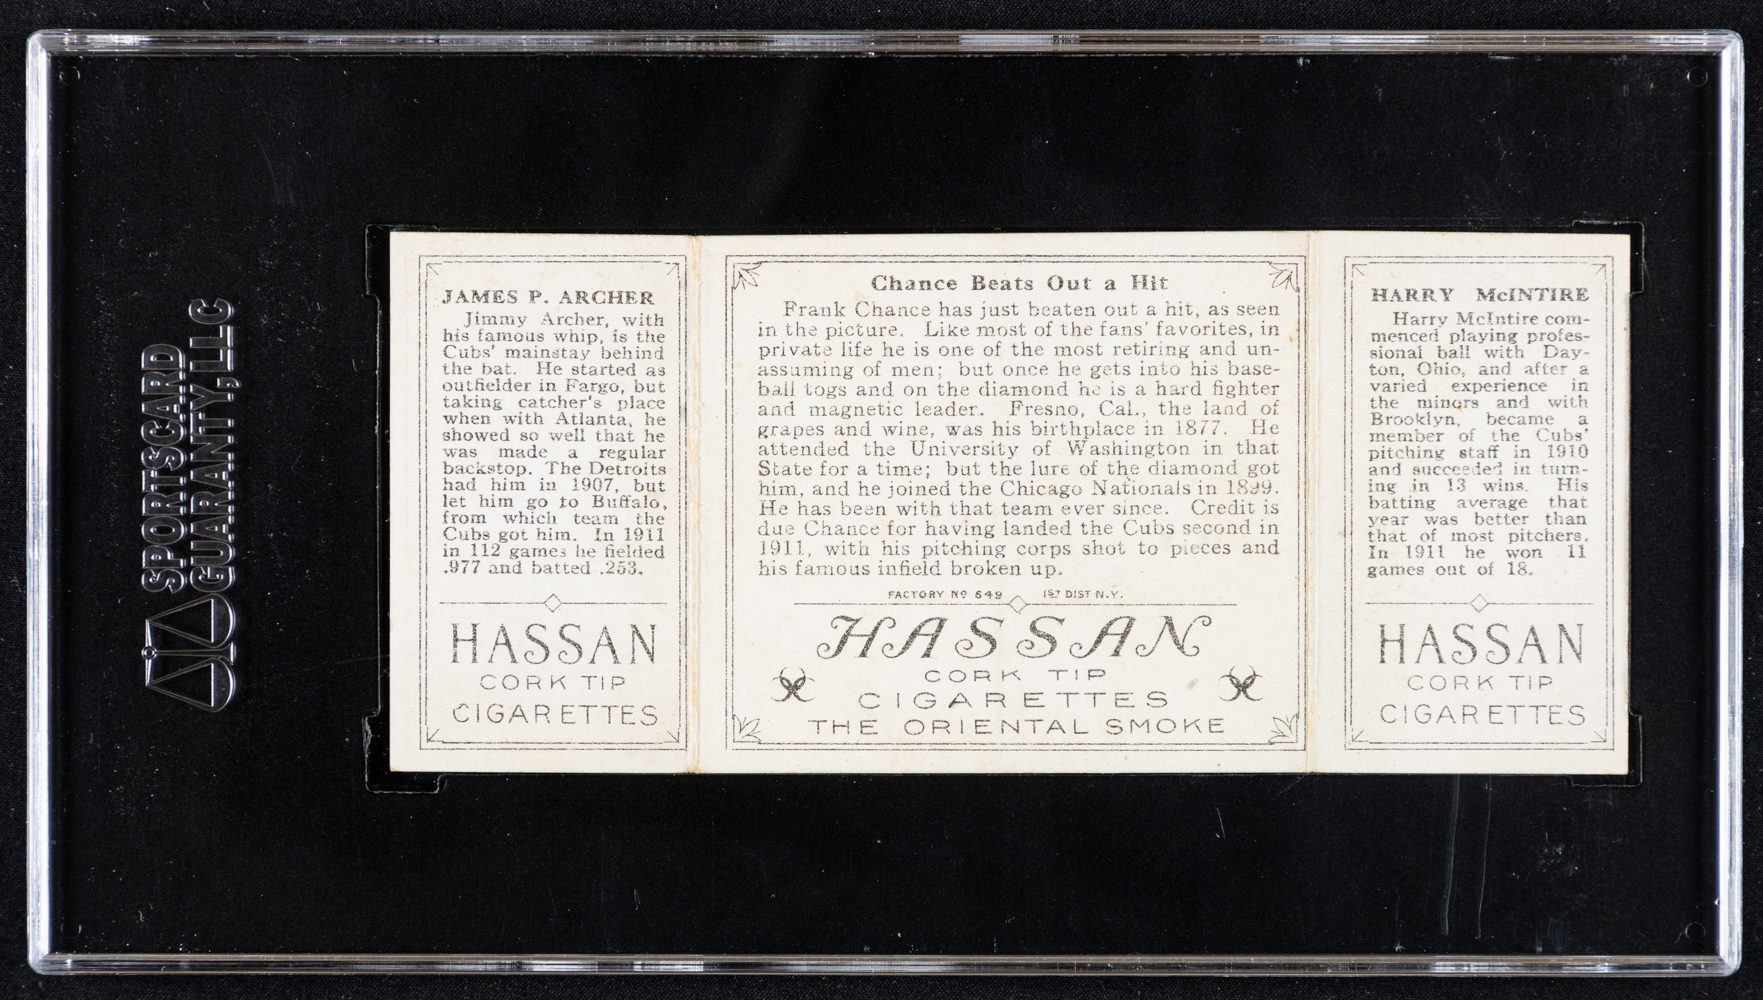 SPORTSCARD
GUARANTY, LLC
JAMES P. ARCHER
Jimmy Archer, with
his famous whip, is the
Cubs' mainstay behind
the bat. He started as
outfielder in Fargo, but
taking catcher's place
when with Atlanta, he
showed so well that he
was made a regular
backstop. The Detroits
had him in 1907, but
let him go to Buffalo,
from which team the
Cubs got him. In 1911
in 112 games he fielded
.977 and batted .253.
HASSAN
CORK TIP
CIGARETTES
Chance Beats Out a Hit
Frank Chance has just beaten out a hit, as seen
in the picture. Like most of the fans' favorites, in
private life he is one of the most retiring and un-
assuming of men; but once he gets into his base-
ball togs and on the diamond he is a hard fighter
and magnetic leader. Fresno, Cal., the land of
grapes and wine, was his birthplace in 1877. He
attended the University of Washington in that
State for a time; but the lure of the diamond got
him, and he joined the Chicago Nationals in 1899.
He has been with that team ever since. Credit is
due Chance for having landed the Cubs second in
1911, with his pitching corps shot to pieces and
his famous infield broken up.
FACTORY Nº 649 1ST DIST N.Y.
HASSAN
CORK TIP
CIGARETTES
THE ORIENTAL SMOKE
HARRY McINTIRE
Harry McIntire com-
menced playing profes-
sional ball with Day-
ton, Ohio, and after a
varied experience in
the minors and with
Brooklyn, became a
member of the Cubs'
pitching staff in 1910
and succeeded in turn-
ing in 13 wins. His
batting average that
year was better than
that of most pitchers.
In 1911 he won 11
games out of 18.
HASSAN
CORK TIP
CIGARETTES